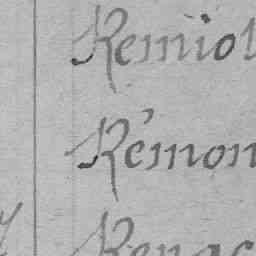 Remiot
Rémon
Renac